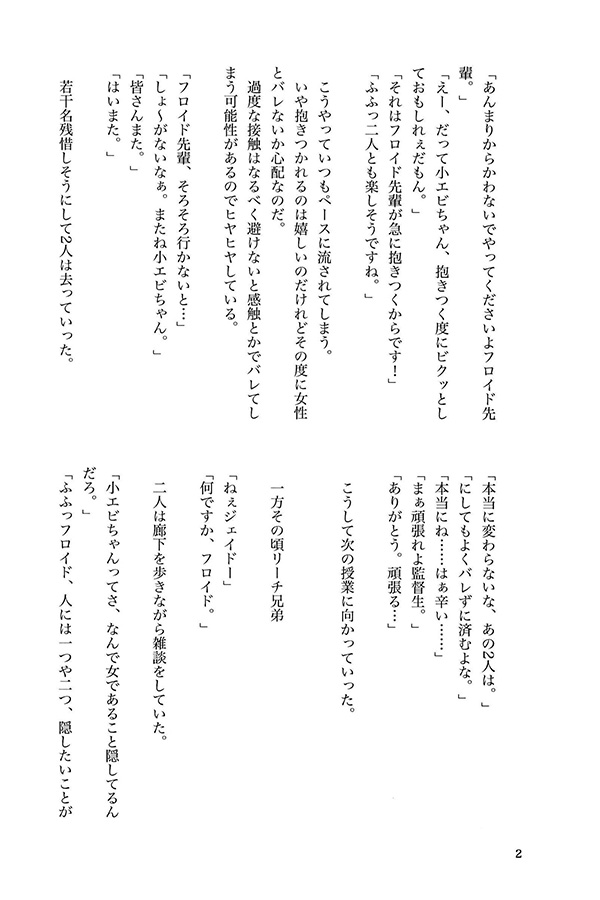 「あんまりからかわないでやってくださいよフロイド先
輩。」
「えー、だって小エビちゃん、抱きつく度にビクッとし
ておもしれぇだもん。」
「それはフロイド先輩が急に抱きつくからです！」
「ふふっ二人とも楽しそうですね。」
こうやっていつもペースに流されてしまう。
いや抱きつかれるのは嬉しいのだけれどその度に女性
とバレないか心配なのだ。
過度な接触はなるべく避けないと感触とかでバレてし
まう可能性があるのでヒヤヒヤしている。
「フロイド先輩、そろそろ行かないと…」
「しょ～がないなぁ。またね小エビちゃん。」
「皆さんまた。」
「はいまた。」
若干名残惜しそうにして2人は去っていった。
「本当に変わらないな、あの2人は。」
「にしてもよくバレずに済むよな。」
「本当にね……はぁ辛い……」
「まぁ頑張れよ監督生。」
「ありがとう。頑張る…」
こうして次の授業に向かっていった。
一方その頃リーチ兄弟
「ねぇジェイドー」
「何ですか、フロイド。」
二人は廊下を歩きながら雑談をしていた。
「小エビちゃんってさ、なんで女であること隠してるん
だろ。」
「ふふっフロイド、人には一つや二つ、隠したいことが
2